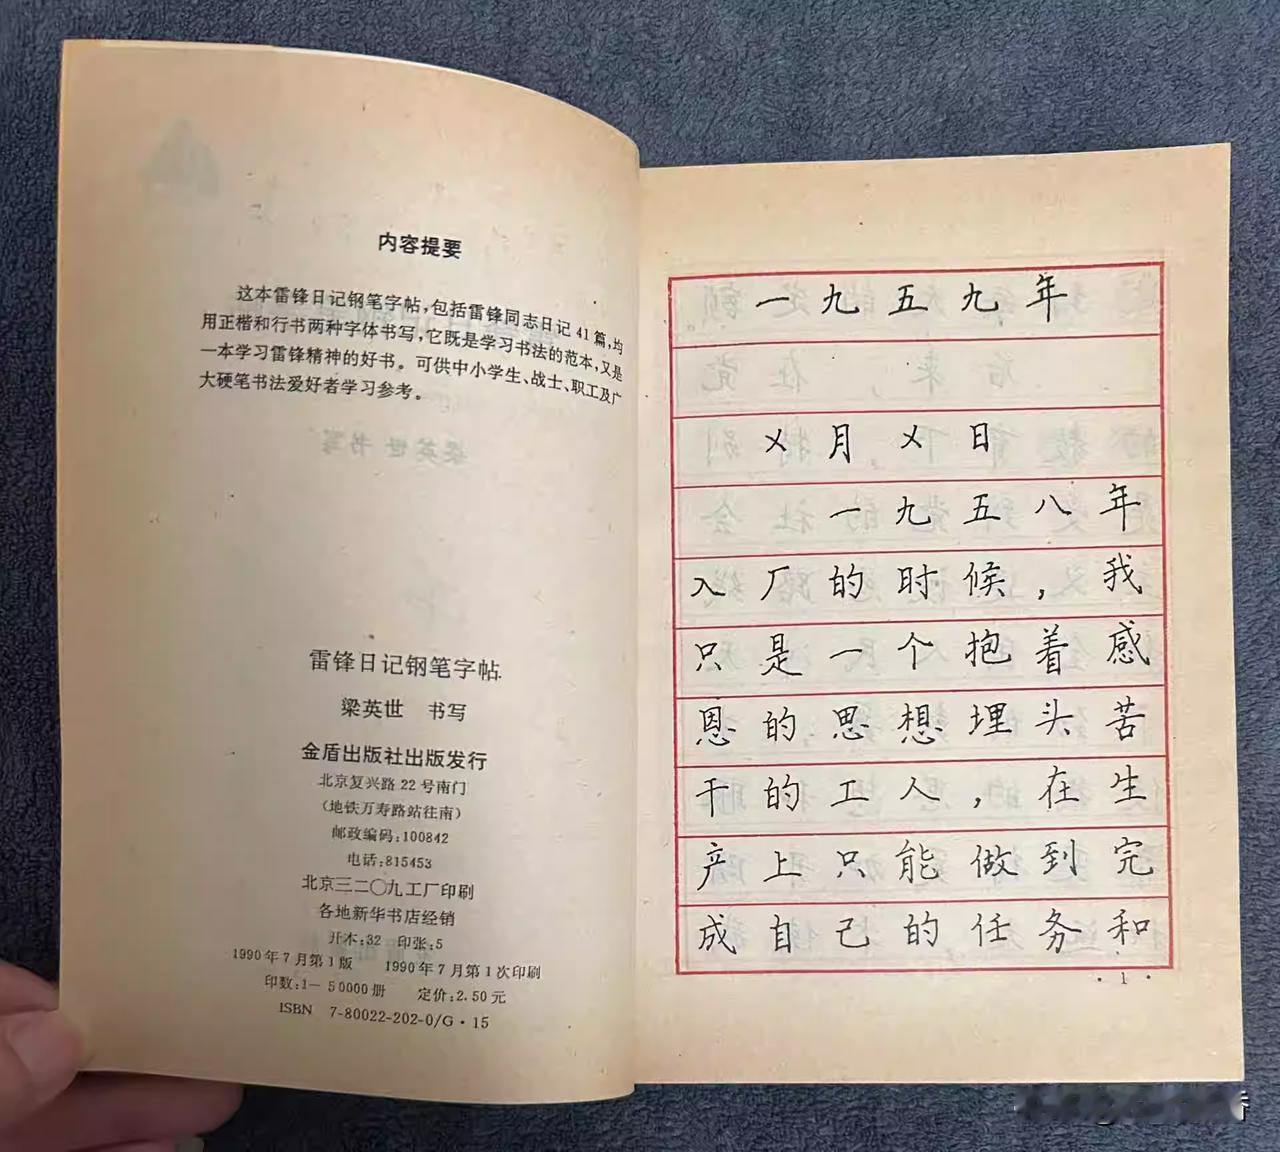 内容提要
这本雷锋日记钢笔字帖，包括雷锋同志日记41篇，均
用正楷和行书两种字体书写，它既是学习书法的范本，又是
一本学习雷锋精神的好书。可供中小学生、战士、职工及广
大硬笔书法爱好者学习参考。
雷锋日记钢笔字帖
梁英世 书写
金盾出版社出版发行
北京复兴路22号南门
（地铁万寿路站往南）
邮政编码：100842
电话：815453
北京三二〇九工厂印刷
各地新华书店经销
开本：32 印张：5
1990年7月第1版 1990年7月第1次印刷
印数：1—50000册 定价：2.50元
ISBN 7-80022-202-0/G·15
一九五九年
×月×日
一九五八年
入厂的时候，我
只是一个抱着感
恩的思想埋头苦
干的工人，在生
产上只能做到完
成自己的任务和
·1·